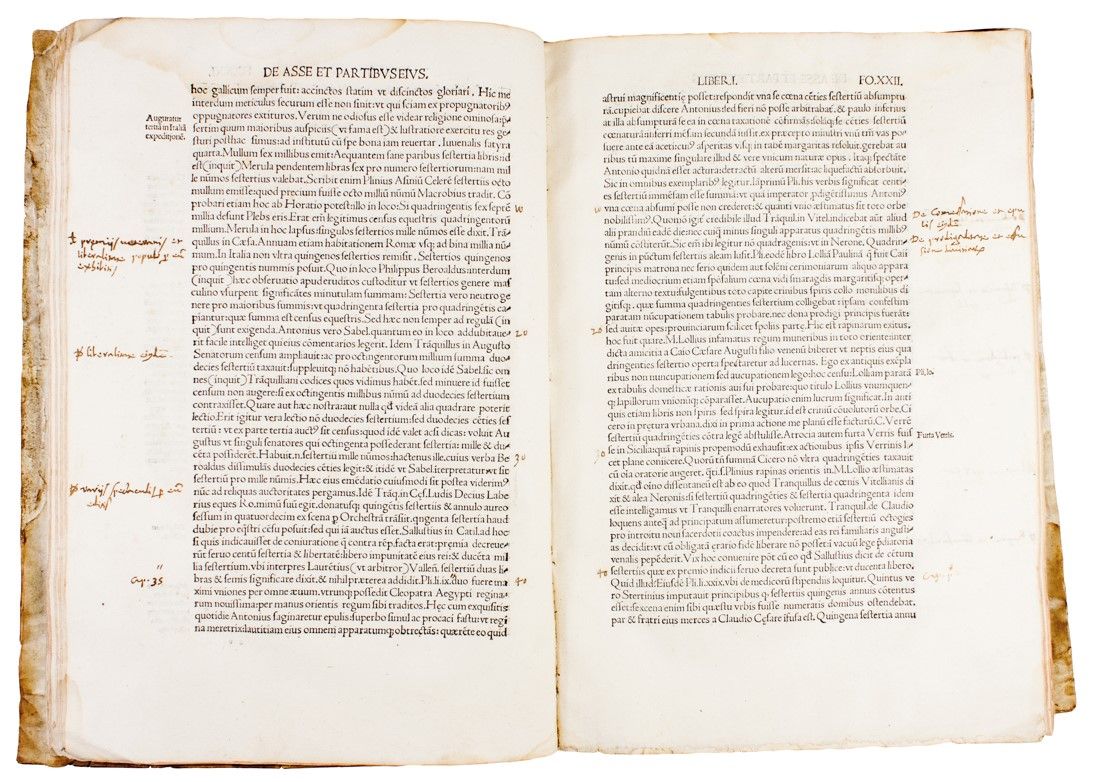 DE ASSE ET PARTIBVS EIVS.
hoc gallicum semper fuit: accinctos statim vt discinctos gloriari. Hic me
interdum meticulus securum esse non sinit: vt qui sciam ex propugnatorib⁹
oppugnatores extituros. Verum ne odiosus esse videar religione ominosa: p̱
sertim quum maioribus auspiciis (vt fama est) & lustratiore exercitu res ge
sturi posthac simus: ad institutū cū spe bona iam reuertar. Iuuenalis satyra
quarta. Mullum sex millibus emit: Aequantem sane paribus sestertia libris: id
est (inquit) Merula pendentem libras sex pro numero sestertiorum: nam mil
le nūmos sestertius valebat. Scribit enim Plinius Asiniū Celerē sestertiis octo
mullum emisse: quod precium fuisse octo milliū nūmū Macrobius tradit. Cō
probari etiam hoc ab Horatio potest: illo in loco: Si quadringentis sex septē
millia desunt Plebs eris. Erat em̄ legitimus census equestris quadringentorū
millium. Merula in hoc lapsus: singulos sestertios mille nūmos esse dixit. Trā
quillus in Cæsa. Annuam etiam habitationem Romæ vsq; ad bina millia nū
mum. In Italia non vltra quingenos sestertios remisit. Sestertios quingenos
pro quingentis nummis posuit. Quo in loco Philippus Beroaldus: interdum
(inquit) hæc obseruatio apud eruditos custoditur vt sestertios genere mas
culino vsurpent significātes minutulam summam: Sestertia vero neutro ge
nere pro maioribus summis: vt quadringenta sestertia pro quadringētis ca
piantur: quæ summa est census equestris. Sed hæc non semper ad regulā (in
quit) sunt exigenda. Antonius vero Sabel. quantum eo in loco adduбitaue
rit facile intelliget qui eius cōmentarios legerit. Idem Trāquillus in Augusto
Senatorum censum ampliauit: ac pro octingentorum millium summa duo
decies sestertiū taxauit: suppleuitq; nō habētibus. Quo loco idē Sabel. sic om
nes (inquit) Trāquilliani codices quos vidimus habēt. sed minuere id fuisset
censum non augere: si ex octingentis millibus nūmū ad duodecies sestertium
contraxisset. Quare aut hæc nostra: aut nulla qđ videā alia quadrare poterit
lectio. Erit igitur vera lectio nō duodecies sestertium: sed duodecies cēties ses
tertiū: vt ex parte tertia auct⁹ sit census: quod idē valet acsi dicas: voluit Au
gustus vt singuli senatores qui octingenta possederant sestertia: mille & du
cēta possiderēt. Habuit. n. sestertius mille nūmos: hactenus ille. cuius verba Be
roaldus dissimulās duodecies cēties legit: & itidē vt Sabel. interpretatur: vt sit
sestertiū pro mille nūmis. Hæc eius emēdatio cuiusmodi sit postea viderim⁹
nūc ad reliquas auctoritates pergamus. Idē Trāq. in Cęs. Ludis Decius Labe
rius eques Ro. mimū suū egit. donatusq; quingētis sestertiis & annulo aureo
sessum in quatuordecim ex scena p̱ Orchestrā trāsiit. quingenta sestertia haud
dubie pro eq̄stri cēsu posuit: sed qui iā auctus esset. Sallustius in Catil. ad hoc
si quis indicauisset de coniuratione q̄ contra rēp. facta erat: præmia decreue
rūt seruo centū sestertia & libertatē: libero impunitatē eius rei: & ducēta mil
lia sestertium. vbi interpres Laurētius (vt arbitror) Vallēn. sestertiū duas li
bras & semis significare dixit. & nihil præterea addidit. Pli. li. ix. duo fuere ma
ximi vniones per omne æuum. vtrumq; possedit Cleopatra Aegypti regina
rum nouissima: per manus orientis regum sibi traditos. Hęc cum exquisitis
quotidie Antonius saginaretur epulis: superbo simul ac procaci fastu: vt regi
na meretrix: lautitiam eius omnem apparatumq; obtrectās: quærēte eo quid
Auguratur
tertiā in Italiā
expeditionē.
20
30
Cap. 35
40
LIBER. I. FO. XXII.
astrui magnificentię posset: respondit vna se cœna cēties sestertiū absumptu
rā. cupiebat discere Antonius: sed fieri nō posse arbitrabat̄. & paulo inferius
at illa absumpturā se ea in cœna taxationē cōfirmās: solāq; se cēties sestertiū
cœnaturā: inferri mēsam secundā iussit. ex præcepto ministri vnū tm̄ vas po
suere ante eā aceti: cui⁹ asperitas visq; in tabē margaritas resoluit. gerebat au
ribus tū maxime singulare illud & vere vnicum naturæ opus. itaq; spectāte
Antonio quidnā esset actura: detractū alterū mersit: ac liquefactū absorbuit.
Sic in omnibus exemplarib⁹ legitur. la primū Pli. his verbis significat centi
es sestertiū immēsam esse summā: vt quā imperator p̱digētissimus Antoni⁹
vna cœna absumi posse non crederet: & quanti vnio æstimatus sit toto orbe
nobilissim⁹. Quomō igit̄ credibile illud Trāquil. in Vitel. indicebat aūt aliud
alii prandiū eadē die: nec cuiq̄ minus singuli apparatus quadringentis millib⁹
nūmū cōstiterūt. Sic em̄ ibi legitur nō quadragenis: vt in Nerone. Quadrin
genis in pūctum sestertiis aleam lusit. Pli. eodē libro Lolliā Paulinā q̄ fuit Caii
principis matrona nec serio quidem aut solēni cerimoniarum aliquo appara
tu: sed mediocrium etiam spōsalium cœna vidi smaragdis margaritisq; oper
tam alterno textu: fulgentibus toto capite crinibus spiris collo monilibus di
gitisq;. quæ summa quadringenties sestertium colligebat: ipsam confestim
paratam nūcupationem tabulis probare. nec dona prodigi principis fuerāt:
sed auitæ opes: prouinciarum scilicet spoliis partæ. Hic est rapinarum exitus.
hoc fuit quare. M. Lollius infamatus regum muneribus in toto oriente: inter
dicta amicitia a Caio Cæsare Augusti filio venenū biberet vt neptis eius qua
dringenties sestertio operta spectaretur ad lucernas. Ego ex antiquis exēpla
ribus non nuncupationem sed aucupationem lego: hoc censu: Lolliam paratā
ex tabulis domesticæ rationis aui sui probare: quo titulo Lollius vnumquen
q; lapillorum vnionūq; cōparasset. Aucupatio enim lucrum significat. In anti
quis etiam libris non spiris. sed spira legitur. id est criniū cōuolutorū orbe. Ci
cero in pretura vrbana. dixi in prima actione me planū esse facturū. C. Verrē
sestertiū quadringēties cōtra legē abstulisse. Atrocia autem furta Verris fuis
se in Sicilia: quā rapinis propemodū exhausit: ex actionibus ipsis Verrinis l
cet plane conicere. Quorū tn̄ summā Cicero nō vltra quadringēties taxauit
cū oīa oratorie augeret. qt̄. i. s. Plinius rapinas orientis in. M. Lollio æstimatas
dixit. qđ oīno dissentaneū est ab eo quod Tranquillus de cœnis Vitellianis di
xit & alea Neronis: si sestertiū quadringēties & sestertia quadringenta idem
esse intelligamus vt Tranquilli enarratores voluerunt. Tranquil. de Claudio
loquens anteq̄ ad principatum assumeretur: postremo etiā sestertiū octogies
pro introitu noui sacerdotii coactus impendere: ad eas rei familiaris angusti
as decidit: vt cū obligatā ærario fidē liberare nō posset: ā vacuū lege p̱diatoria
venalis pepēderit. Vix hoc conuenire pōt cū eo qđ Sallustius dicit de cētum
sestertiis quæ ex præmio indicii seruo decreta sunt publice: vt ducenta libero.
Quid illud? Eiusdē Pli. li. xxix. vbi de medicorū stipendiis loquitur. Quintus ve
ro Stertinius imputauit principibus q̄ sestertiis quingenis annuis cōtentus
esset: sexcena enim sibi quæstu vrbis fuisse numeratis domibus ostendebat.
par & fratri eius merces a Claudio Cęsare ifusa est. Quingena sestertia annu
10
20
Pli. lo.
Furta Verris.
30
40